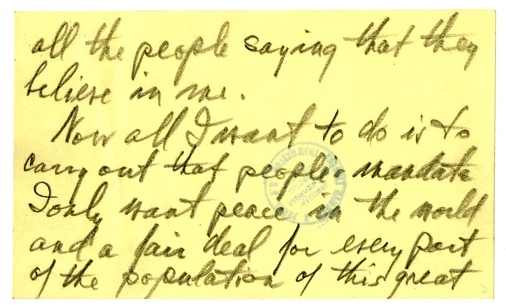 all the people saying that they
believe in me.
Now all I want to do is to
carry out that peoples mandate
I only want peace in the world
and a fair deal for every part
of the population of this great